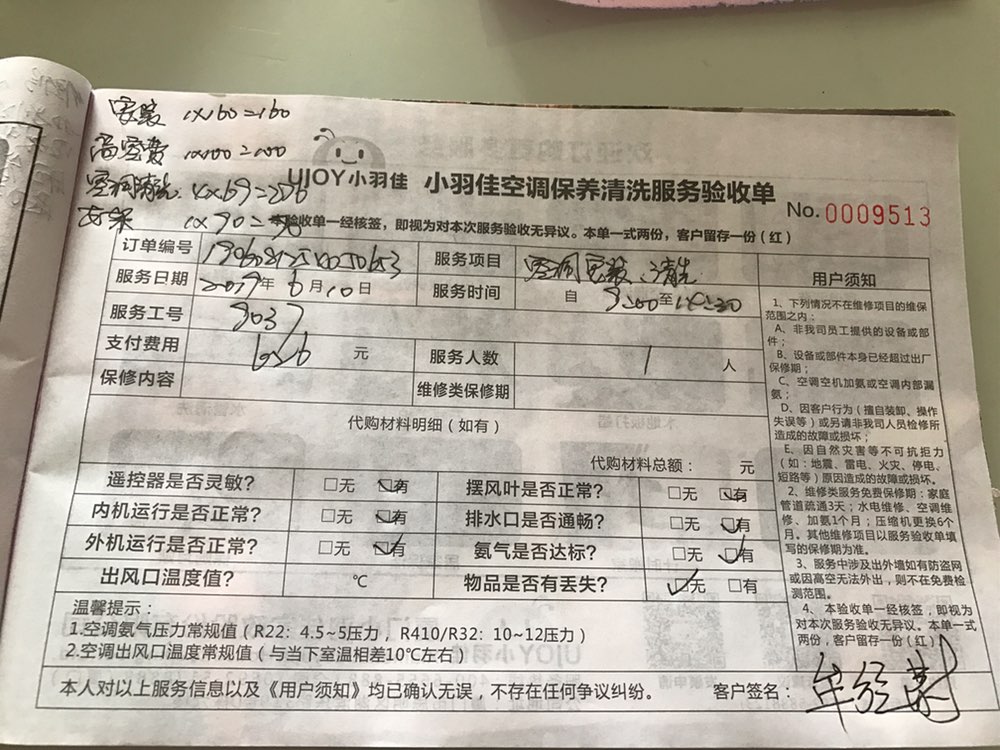 安装 1×160=160
高空费 1×100=100
空调清洗 4×69=276
支架 1×90=90
UJOY小羽佳 小羽佳空调保养清洗服务验收单
No. 0009513
验收单一经核签，即视为对本次服务验收无异议。本单一式两份，客户留存一份（红）
订单编号 服务项目 空调安装、清洗
服务日期 2019年6月10日 服务时间 自 9:00至14:30
服务工号 9037
支付费用 626 元 服务人数 1 人
保修内容 维修类保修期
代购材料明细（如有）
代购材料总额： 元
遥控器是否灵敏？ □无 □有 摆风叶是否正常？ □无 □有
内机运行是否正常？ □无 □有 排水口是否通畅？ □无 □有
外机运行是否正常？ □无 □有 氨气是否达标？ □无 □有
出风口温度值？ ℃ 物品是否有丢失？ □无 □有
温馨提示：
1.空调氨气压力常规值（R22：4.5~5压力，R410/R32：10~12压力）
2.空调出风口温度常规值（与当下室温相差10℃左右）
本人对以上服务信息以及《用户须知》均已确认无误，不存在任何争议纠纷。 客户签名：
用户须知
1、下列情况不在维修项目的维保
范围之内：
A、非我司员工提供的设备或部
件；
B、设备或部件本身已经超过出厂
保修期；
C、空调空机加氨或空调内部漏
氨；
D、因客户行为（擅自装卸、操作
失误等）或另请非我司人员检修所
造成的故障或损坏；
E、因自然灾害等不可抗拒力
（如：地震、雷电、火灾、停电、
短路等）原因造成的故障或损坏。
2、维修类服务免费保修期：家庭
管道疏通3天；水电维修、空调维
修、加氨1个月；压缩机更换6个
月。其他维修项目以服务验收单填
写的保修期为准。
3、服务中涉及出外墙如有防盗网
或因高空无法外出，则不在免费检
测范围。
4、本验收单一经核签，即视为
对本次服务验收无异议。本单一式
两份，客户留存一份（红）